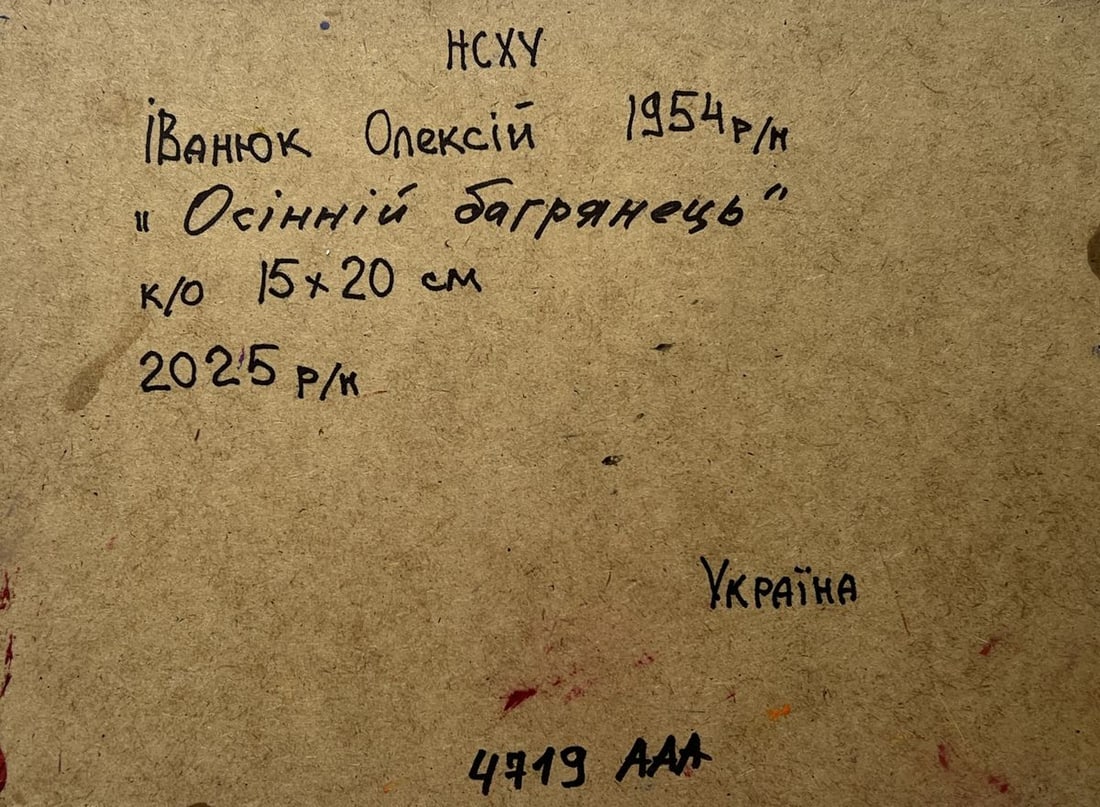 НСХУ
Іванюк Олексій 1954 р/н
„Осінній багрянець"
к/о 15x20 см
2025 р/н
Україна
4719 ААА